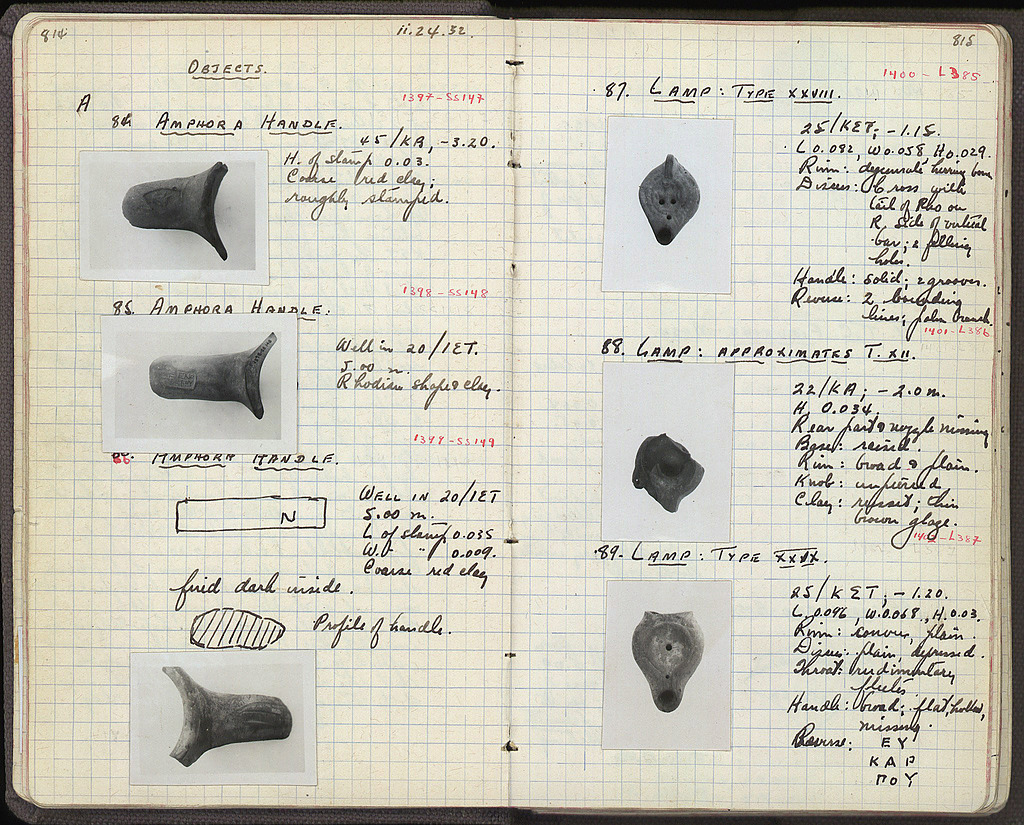 814
ii.24.32.
OBJECTS.
A
1397-SS147
84 AMPHORA HANDLE.
45/KA, -3.20.
H. of stamp 0.03.
Coarse red clay;
roughly stamped.
1398-SS148
85. AMPHORA HANDLE.
Well in 20/ΙΣΤ.
5.00 m.
Rhodian shape & clay.
1399-SS149
86. AMPHORA HANDLE.
WELL IN 20/ΙΣΤ
5.00 m.
L of stamp 0.035
W. " " 0.009.
Coarse red clay
N
fired dark inside.
Profile of handle.
815
1400-L385
87. LAMP: TYPE XXVIII.
25/ΚΣΤ, -1.15.
L 0.082, W 0.058 H 0.029.
Rim: degenerate herring bone
Discus: Cross with
tail of Rho on
R. side of vertical
bar; 2 filling
holes.
Handle: solid; 2 grooves.
Reverse: 2 bounding
lines; palm branch.
1401-L386
88. LAMP: APPROXIMATES T. XII.
22/KA; -2.0 m.
H. 0.034.
Rear part & nozzle missing
Base: raised.
Rim: broad & plain.
Knob: unpierced
Clay: russet; thin
brown glaze.
1402-L387
89. LAMP: TYPE
25/ΚΣΤ, -1.20.
L. 0.096, W. 0.068, H. 0.03.
Rim: convex, plain.
Discus: plain, depressed.
Throat: rudimentary
flutes.
Handle: broad; flat,
missing.
Reverse: ΕΥ
ΚΑΡ
ΠΟΥ